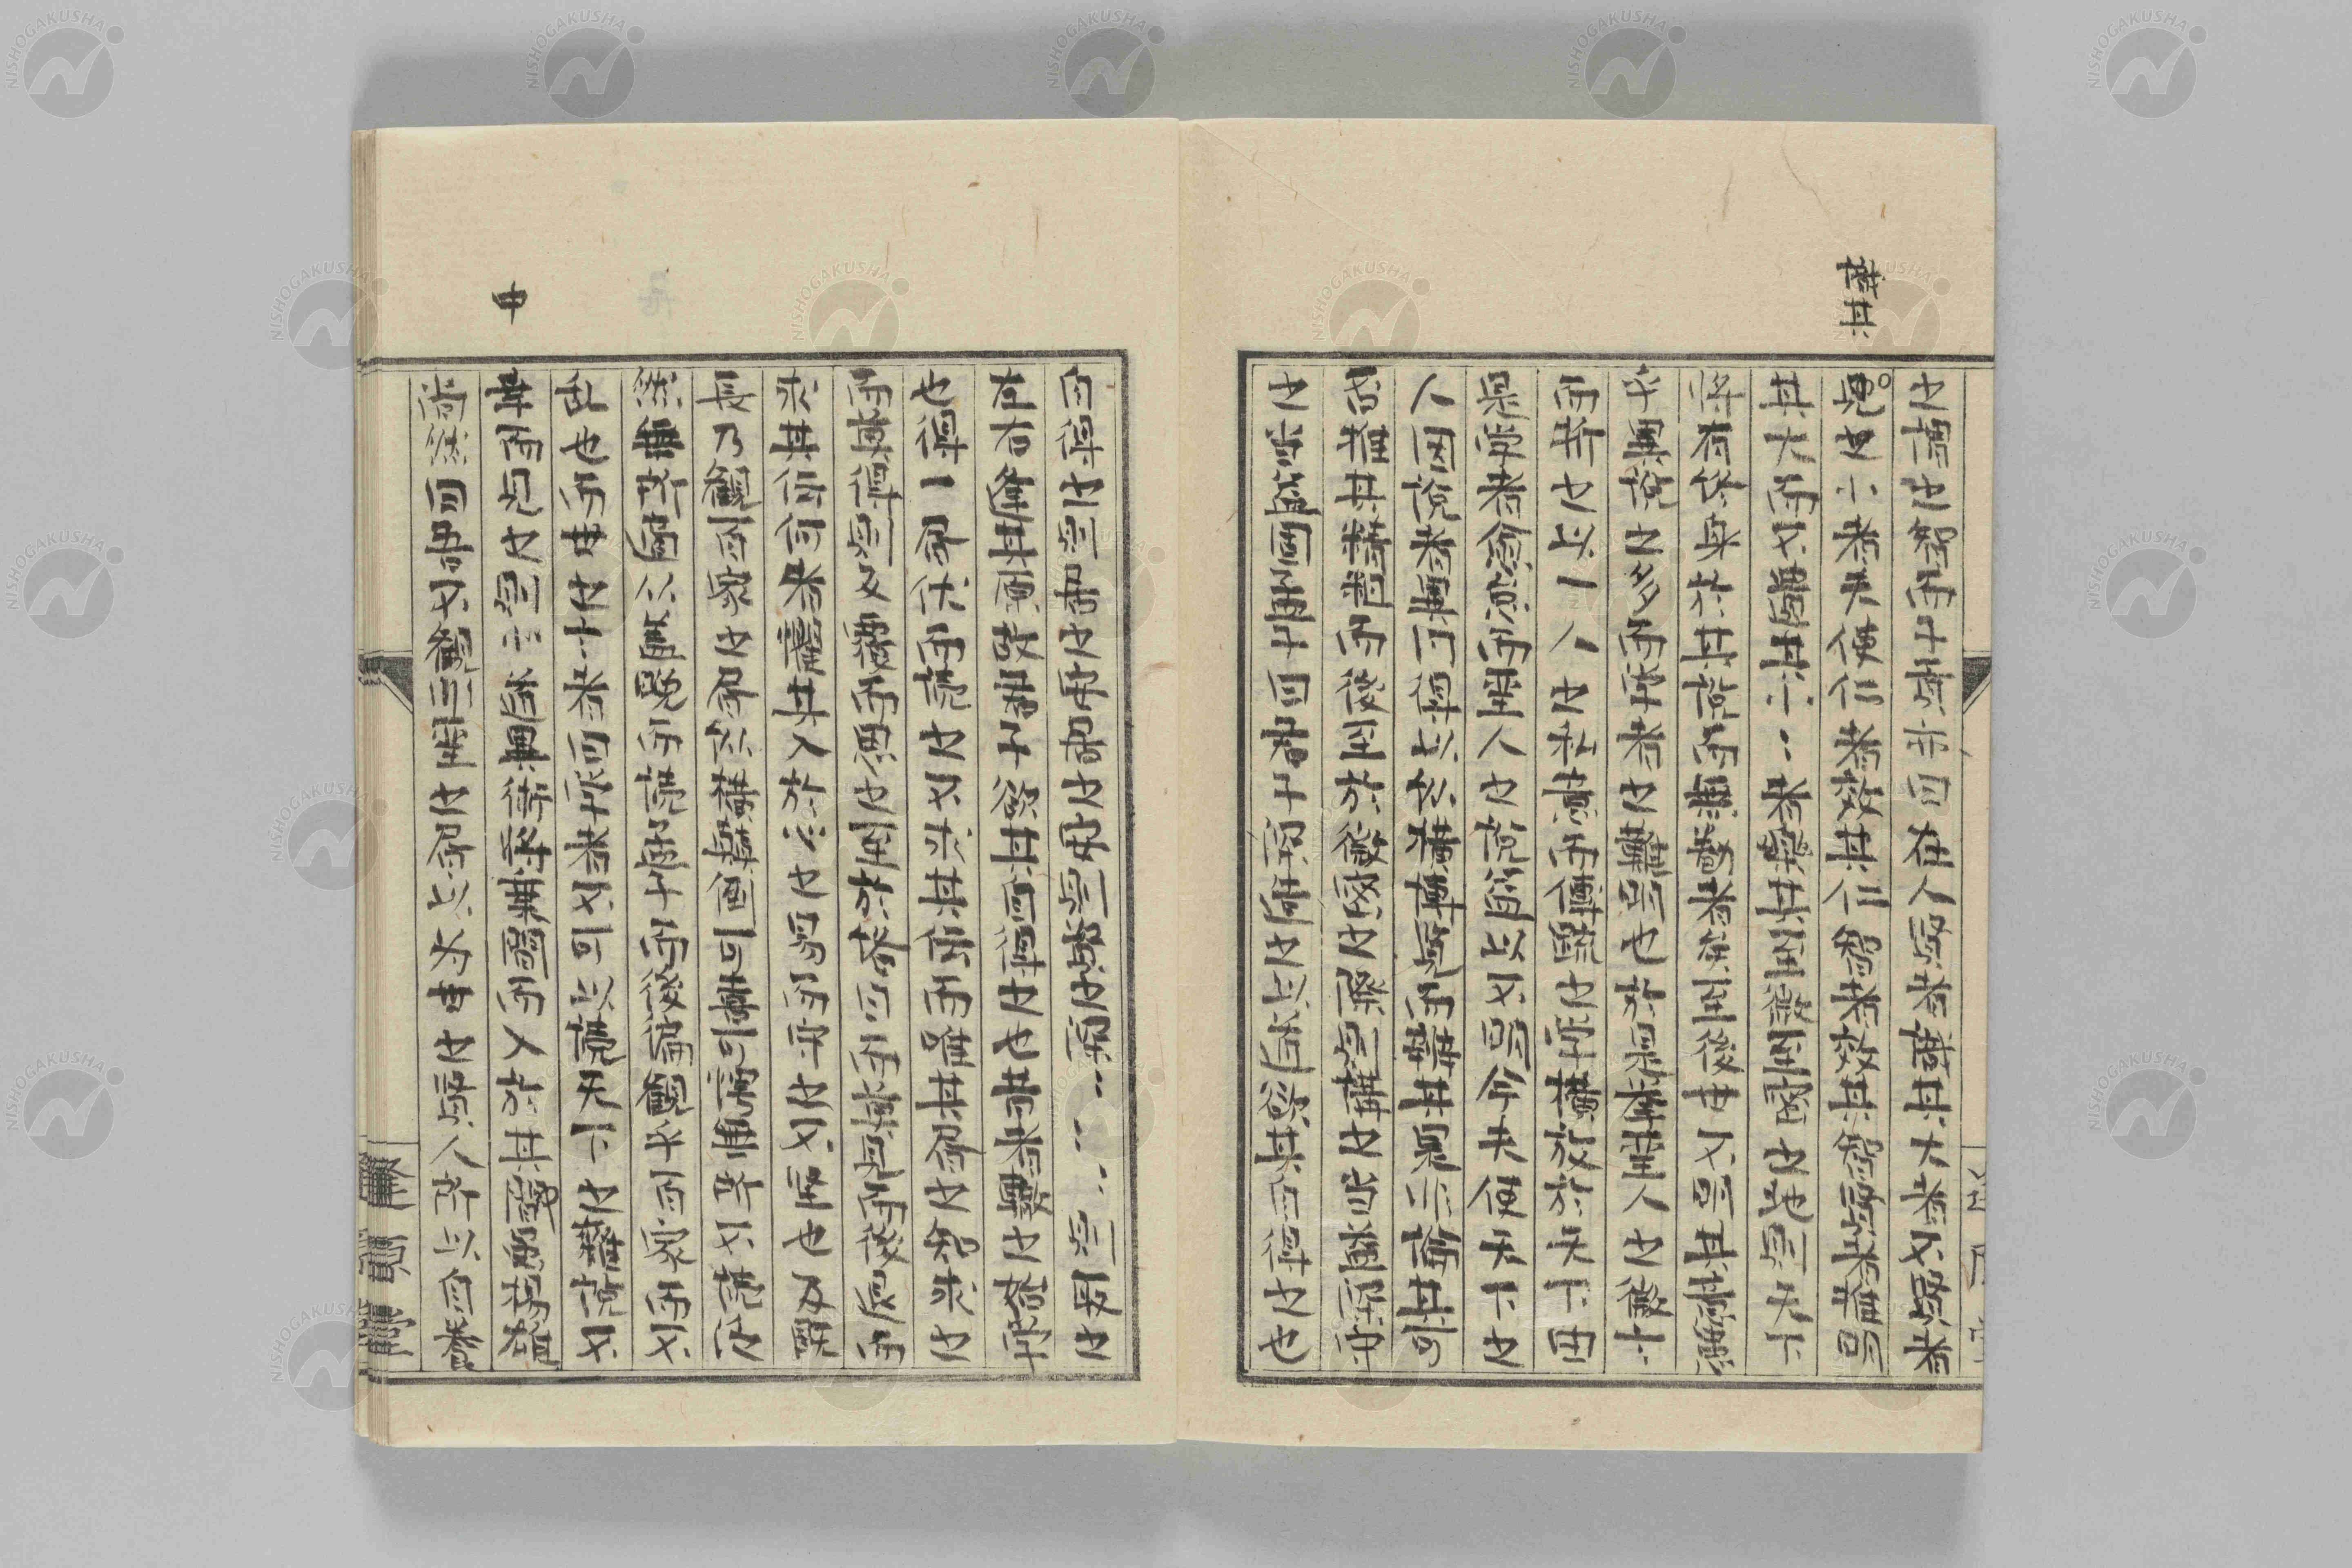 之博也然而子貢亦曰在人賢者識其大者不賢者
見也小者夫使仁者效其仁智者效其智大者推明
其大而不遺其小小者樂其至微至密之地則天下
將有終身於其說而無勌者矣至後世不明其意患
乎異說之多而學者之難明也於是舉聖人之微言
而折之以一人之私意而傳疏之學橫放於天下由
是學者愈怠而聖人之說益以不明今夫使天下之
人因說者異同得以縱橫博覽而辯其是非論其可
否推其精粗而後至於微密之際則講之當益深守
之當益固孟子曰君子深造之以道欲其自得之也
自得之則居之安居之安則資之深資之深則取之
左右逢其原故君子欲其自得之也昔者轍之始學
也得一書伏而讀之不求其傳而惟其書之知求之
而莫得則反覆而思之至於終日而莫見而後退而
求其得何者懼其入於心之易而守之不堅也及既
長乃觀百家之書縱橫顛倒可喜可愕無所不讀汎
然無所適從蓋晚而讀孟子而後徧觀乎百家而不
乱也而世之言者曰學者不可以讀天下之雜說不
幸而見之則小道異術將乘間而入於其中雖揚雄
尚然曰吾不觀非聖之書以為世之賢人所以自養
識其
中